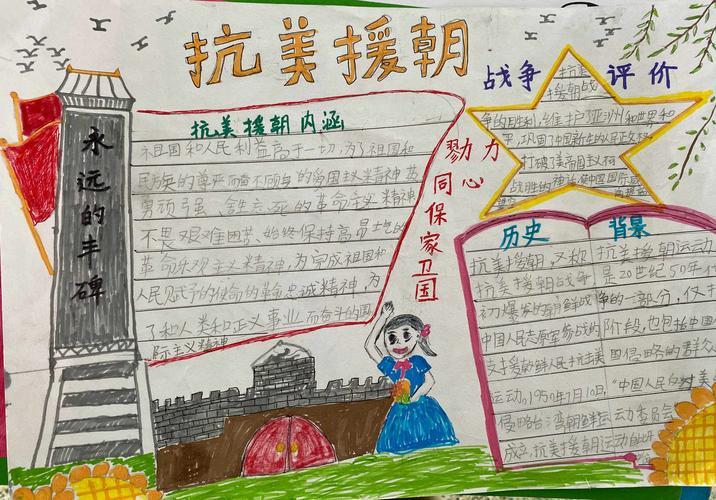 抗美援朝
永远的丰碑
抗美援朝内涵
祖国和人民利益高于一切,为了祖国和
民族的尊严而奋不顾身的爱国主义精神英
勇顽强、舍生忘死的革命主义精神
不畏艰难困苦,始终保持高昂士气的
革命乐观主义精神,为完成祖国和
人民赋予的使命的革命忠诚精神,为
了和人类和正义事业而奋斗的国
际主义精神
勠力
同心
保家卫国
战争评价
抗美
援朝战
争的胜利,维护亚洲和世界和
平,巩固了中国新生的人民政权
打破了美帝国
战胜的神话,使中国国际
历史
抗美援朝,又称
抗美援朝战争
初爆发的朝鲜战
中国人民志愿军参战的
支援朝鲜人民抗击美
运动。1950年7月10日,
侵略台湾朝鲜
成立,抗美援朝运动
背景
抗美援朝运动
是20世纪50年代
争的一部分,仅指
阶段,也包括中国
国侵略的群众
“中国人民反对美
运动委员会
自此